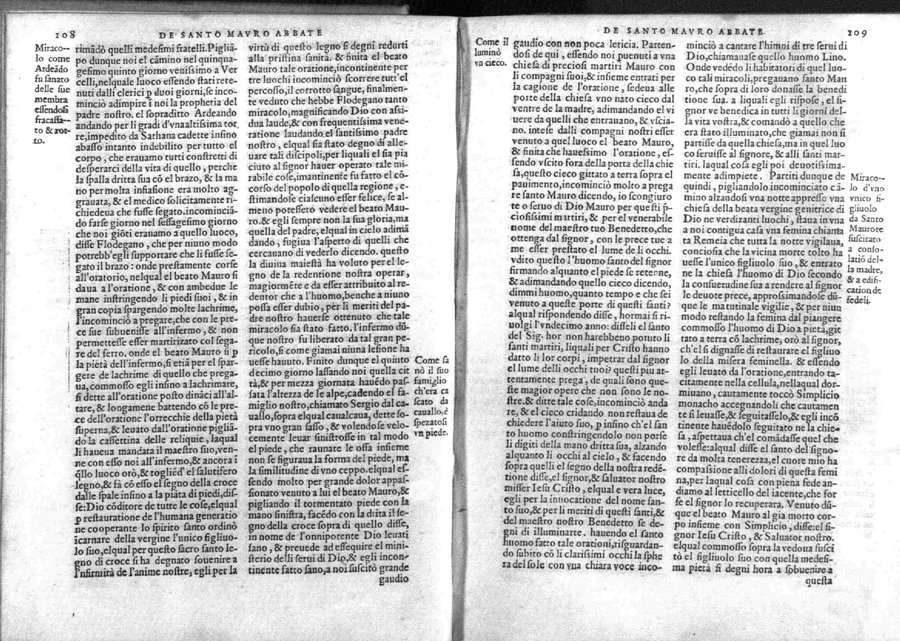 108
DE SANTO MAVRO ABBATE
Miraco-
lo come
Ardeãdo
fu sanato
delle sue
membra
essendosi
fracassa-
to & rot-
to.
rimãdò quelli medesimi fratelli. Pigliã-
po dunque noi el cãmino nel quinqua-
gesimo quinto giorno venissimo a Ver
celli, nelquale luoco essendo stati rete-
nuti dalli clerici p duoi giorni, se inco-
minciò adimpire ĩ noi la propheria del
padre nostro. el sopraditto Ardeando
andando per li gradi d'vna altissima tor
re, impedito da Sathana cadette insino
abasso intanto indebilito per tutto el
corpo, che erauamo tutti constretti di
desperarci della vita di quello, perche
la spalla dritta sua cõ el brazo, & la ma
no per molta infiasione era molto ag-
grauata, & el medico solicitamente ri-
chiedeua che fusse segato. incomincian-
do farse giorno nel sessagesimo giorno
che noi gionti erauamo a quello luoco,
disse Flodegano, che per niuno modo
potrebb'egli supportare che li fusse se-
gato il brazo: onde prestamente corse
all'oratorio, nelqual el beato Mauro si
daua a l'oratione, & con ambedue le
mane instringendo li piedi suoi, & in
gran copia spargendo molte lachrime,
l'incominciò a pregare, che con le pre-
ce sue subuenisse all'infermo, & non
permettesse esser martirizato col sega-
re del ferro. onde el beato Mauro sì p
la pietà dell'infermo, sì etiã per el spar-
gere de lachrime di quello che prega-
ua, commosso egli insino a lachrimare,
si dette all'oratione posto dinãci all'al-
tare, & longamente battendo cõ le pre-
ce dell'oratione l'orrecchie della pietà
superna, & leuato dall'oratione piglian-
do la cassettina delle reliquie, laqual
li haueua mandata il maestro suo, ven-
ne con esso noi all'infermo, & ancora ĩ
q̃llo luoco orò, & togliẽd' el salutifero
legno, & fa cõ esso el segno della croce
dalle spale insino a la piãta di piedi, dis-
se: Dio cõditore de tutte le cose, elqual
p restauratione de l'humana generatio
ne cooperante lo spirito santo ordinò
ĩcarnare della vergine l'unico figliuo-
lo suo, elqual per questo sacro santo le-
gno di croce si ha degnato souenire a
l'ĩnfirmità de l'anime nostre, egli per la
virtù di questo legno si degni redurti
alla pristina sanità. & finita el beato
Mauro tale oratione, incontinente per
tre luochi incominciò scorrere tutt'el
percosso, il corrotto sangue, finalmen-
te veduto che hebbe Flodegano tanto
miracolo, magnificando Dio con assi-
dua laude, & con frequentissima vene-
ratione laudando el santissimo padre
nostro, elqual sia stato degno di alle-
uare tali discipoli, per liquali el sia pia
ciuto al signor hauer operato tale mi-
rabile cose, imantinente fu fatto el cõ-
corso del popolo di quella regione, e-
stimandose ciascuno esser felice, se al-
meno potessero vedere el beato Mau-
ro. & egli sempre non la sua gloria, ma
quella del padre, elqual in cielo adimã
dando, fugiua l'aspetto di quelli che
cercauano di vederlo dicendo. questo
la diuina maiestà ha volsuto per el le-
gno de la redentione nostra operar,
magiormẽte è da esser attribuito al re-
dentor che a l'huomo, benche a niuno
possa esser dubio, per li meriti del pa-
dre nostro hauerse ottenuto che tale
miracolo sia stato fatto. l'infermo dũ-
que nostro fu liberato da tal gran pe-
ricolo, sì come giamai niuna lesione ha
uesse hauuto. Finito dunque el quinto
decimo giorno lassando noi quella cit
tà, & per mezza giornata hauẽdo pas-
sata l'altezza de le alpe, cadendo el fa-
miglio nostro, chiamato Sergio dal ca-
uallo, sopra elqual caualcaua, dette so-
pra vno gran sasso, & volendose velo-
cemente leuar sinistrosse in tal modo
el piede, che raunate le ossa insieme
non se figuraua la forma del piede, ma
la similitudine di vno ceppo. elqual es-
sendo molto per grande dolor appas-
sionato venuto a lui el beato Mauro, &
pigliando il tormentato piede con la
mano sinistra, facẽdo con la drita il se-
gno della croce sopra di quello disse,
in nome de l'onnipotente Dio leuati
sano, & preuede ad essequire el mini-
sterio delli serui di Dio. & egli incon-
tinente fatto sano, a noi suscitò grande
gaudio
Come sa
nò il suo
famiglio
ch'era ca
scato da
cauallo, e
spezatosi
vn piede.
DE SANTO MAVRO ABBATE
109
Come il
luminò
vn cieco.
gaudio con non poca leticia. Parten-
dosi de qui, essendo noi puenuti a vna
chiesa di preciosi martiri Mauro con
li compagni suoi, & insieme entrati per
la cagione de l'oratione, sedeua alle
porte della chiesa vno nato cieco dal
ventre de la madre, adimandando el vi
uere da quelli che entrauano, & vscia-
no. intese dalli compagni nostri esser
venuto a quel luoco el beato Mauro,
& finita che hauessimo l'oratione, es-
sendo vscito fora della porta della chie
sa, questo cieco gittato a terra sopra el
pauimento, incominciò molto a prega
re santo Mauro dicendo, io scongiuro
te o seruo di Dio Mauro per questi p-
ciosissimi martiri, & per el venerabile
nome del maestro tuo Benedetto, che
ottenga dal signor, con le prece tue a
me esser prestato el lume de li occhi.
vdito questo l'huomo santo del signor
firmando alquanto el piede se retenne,
& adimandando quello cieco dicendo,
dimmi huomo, quanto tempo e che sei
venuto a queste porte di questi santi?
alqual rispondendo disse, hormai si ri-
uolgi l'vndecimo anno: disseli el santo
del Signor non harebbeno potuto li
santi martiri, liquali per Cristo hanno
datto li lor corpi, impetrar dal signor
el lume delli occhi tuoi? questi piu at
tentamente prega, de quali sono que-
ste magior opere che non sono le no-
stre. & ditte tale cose, incominciò anda
re, & el cieco cridando non restaua de
chiedere l'aiuto suo, p insino ch'el san
to huomo constringendolo non porse
li digiti della mano dritta sua, alzando
alquanto li occhi al cielo, & facendo
sopra quelli el segno della nostra redẽ
tione disse, el signor, & saluator nostro
misser Iesu Cristo, elqual e vera luce,
egli per la inuocatione del nome san-
to suo, & per li meriti di questi santi, &
del maestro nostro Benedetto se de-
gni di illuminarte. hauendo el santo
huomo fatto tale orationi, risguardan-
do subito cõ li clarissimi occhi la sphe
ra del sole con vna chiara voce inco-
minciò a cantare l'himni di tre serui di
Dio, chiamauase quello huomo Lino.
Onde vedẽdo li habitatori di quel luo-
co tali miracoli, pregauano santo Mau
ro, che sopra di loro donasse la benedi
tione sua. a liquali egli rispose, el si-
gnor ve benedica in tutti li giorni del-
la vita vostra, & comandò a quello che
era stato illuminato, che giamai non si
partisse da quella chiesa, ma in quel luo
co seruisse al signore, & alli santi mar-
tiri. laqual cosa egli poi deuotissima-
mente adimpiete. Partiti dunque de
quindi, pigliandolo incominciato cã-
mino alzandosi vna notte appresso vna
chiesa della beata vergine genitrice di
Dio ne verdizanti luochi, staua in vna
a noi contigua casa vna femina chiama
ta Remeia che tutta la notte vigilaua,
conciosia che la vicina morte tolto ha
uesse l'unico figliuolo suo, & entrato
ne la chiesa l'huomo di Dio secondo
la consuetudine sua a rendere al signor
le deuote prece, approsimandole dũ-
que le matutinale vigilie, & per niun
modo restando la femina dal piangere
commosso l'huomo di Dio a pietà, git
tato a terra cõ lachrime, orò al signor,
ch'el si dignasse di restaurare el figliuo
lo della misera feminella. & essendo
egli leuato da l'oratione, entrando ta-
citamente nella cellula, nellaqual dor-
miuano, cautamente toccò Simplicio
monacho accegnandoli che cautamen
te si leuasse, & seguitasselo, & egli incõ
tinente hauẽdolo seguitato ne la chie-
sa, aspettaua ch'el comãdasse quel che
volesse: alqual disse el santo del signo-
re da molta tenerezza, el cuore mio ha
compassione alli dolori di questa femi
na, per laqual cosa con piena fede an-
diamo al letticello del iacente, che for
se el signor lo recuperarà. Venuto dũ-
que el beato Mauro al gia morto cor-
po insieme con Simplicio, disse: el si-
gnor Iesu Cristo, & Saluator nostro.
elqual commosso sopra la vedoua susci
tò el figliuolo suo con quella medesi-
ma pietà si degni hora a sobuenire a
questa
Miraco-
lo d'vno
vnico fi-
gliuolo
da Santo
Maurore
suscitato
a conso-
latiõ del-
la madre,
& a edifi
cation de
fedeli.